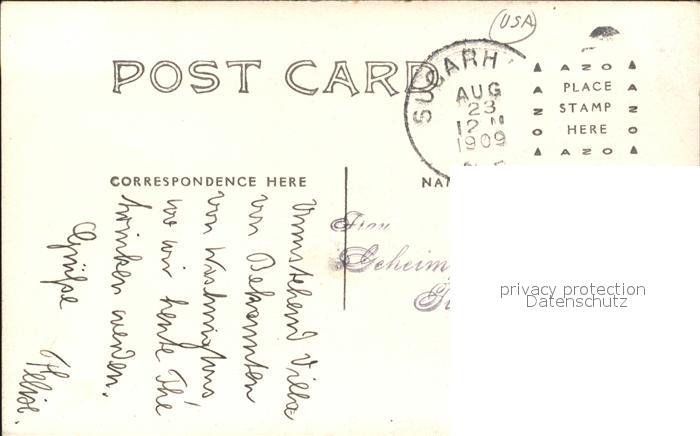 USA
POST CARD
SUGARH
AUG
23
12 M
1909
AZO
PLACE
STAMP
HERE
AZO
CORRESPONDENCE HERE
NA
Umstehend Villa
von Bekannten
von Washingtons
wo wir heute Thé
trinken werden.
Grüße
Frau
Geheim
privacy protection
Datenschutz